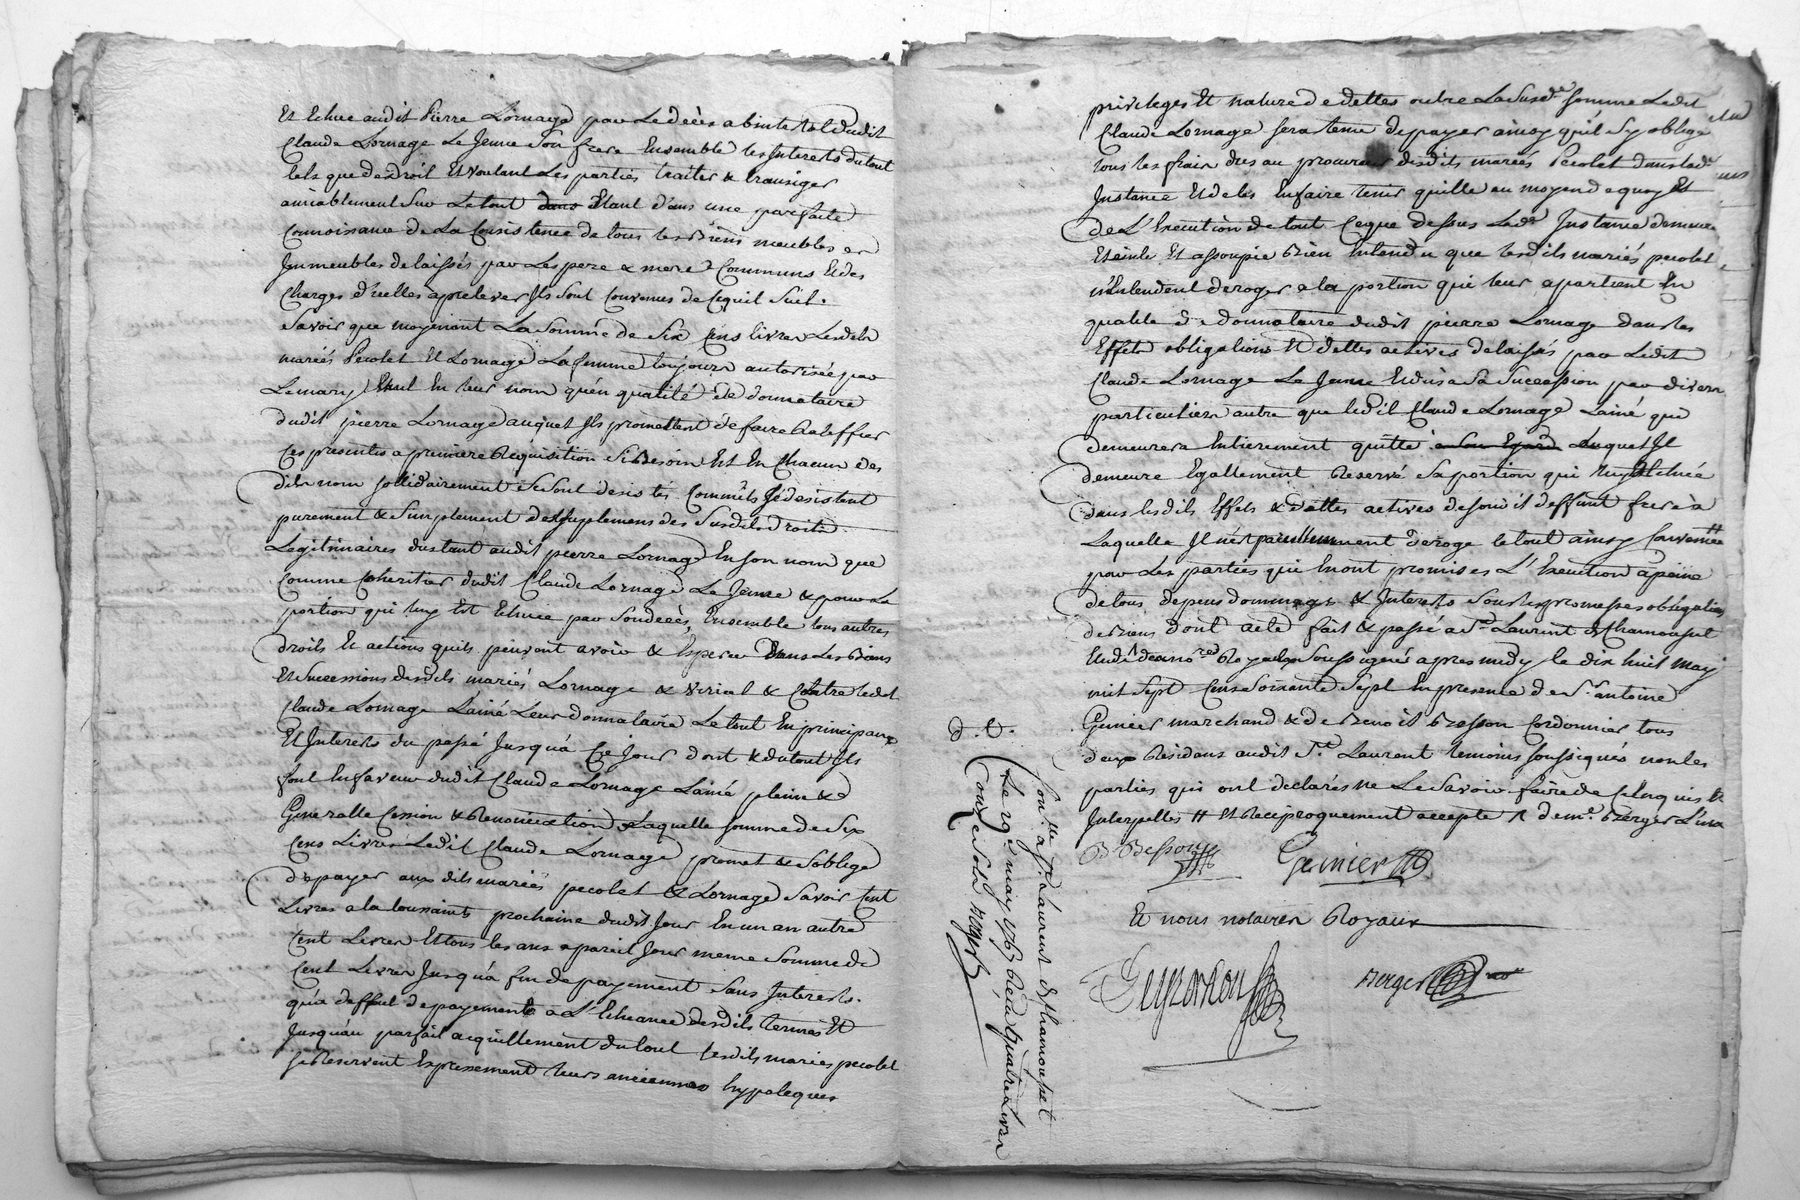 Et Echue audit Pierre Lornage par Le decès abintestat dudit
Claude Lornage Le Jeune Son frere Ensemble les Interests du tout
tels que de Droit Et voulant Les parties traiter & transiger
amiablement Sur Le tout dans Etant dans une parfaite
Connoissance de La Consistence de tous les Biens meubles et
Immeubles delaissés par Les pere & mere Communs & des
Charges d'icelles aprelever Ils Sont Convenus de Cequil Suit.
Savoir que moyenant La Somme de Six Cens livres Lesdits
mariés Pecolet Et Lornage La femme toujours autorisée par
Le mary tant En leur nom qu'en qualité de donnataire
dudit pierre Lornage auquel Ils promettent de faire Ratiffier
Ces presentes a premiere Requisition Si Besoin Est En Chacun des
dits nom sollidairement Se Sont desistés Comm'ils Se desistent
purement & Simplement des Suplemens des Susdits Droits
Legitimaires distant audit pierre Lornage En Son nom que
Comme Coheritier dudit Claude Lornage Le Jeune & pour La
portion qui luy Est Echue par Son decès, Ensemble tous autres
droits Et actions quils peuvent avoir & Esperer Dans Les Biens
Et Successions desdits mariés Lornage & Virial & Contre Ledit
Claude Lornage Lainé Leur donnataire Le tout En principaux
Et Interests du passé Jusqu'à Ce Jour dont & du tout Ils
font En faveur dudit Claude Lornage Lainé pleine &
Generalle Cession & Renonciation Laquelle Somme de Six
Cens Livres Ledit Claude Lornage promet & Soblige
de payer aux dits mariés pecolet & Lornage Savoir Cent
Livres a la toussaints prochaine dudit Jour En un an autre
Cent Livres Et tous les ans a pareil Jour meme Somme de
Cent Livres Jusqu'à fin de payement Sans Interests.
qu'a deffaut de payement a L'Echeance desdits termes Et
Jusqu'au parfait acquittement du tout lesdits mariés pecolet
Se Reservent Expressement leurs anciennes hypoteques
privileges Et nature de dettes outre La Susde somme Ledit
Claude Lornage Sera tenu de payer ainsy qu'il S'y oblige
tous les frais dus au procureur desdits mariés Pecolet dans lade
Instance Et de les En faire tenir quitte au moyen de quoy Et
de L'Execution de tout Ceque dessus Lade Instance demeure
Eteinte Et assoupie Bien Entendu que lesdits mariés pecolet
n'Entendent deroger a la portion qui leur apartient En
qualité de donnataire dudit pierre Lornage dans les
Effets obligations Et dettes actives delaissés par Ledit
Claude Lornage Le Jeune Et dus a Sa Succession par divers
particuliers autre que ledit Claude Lornage Lainé qui
demeurera Entierement quitte auquel Il
demeure Egallement Reservé Sa portion qui luy Est Echue
dans lesdits Effets & dettes actives de son dit deffunt frere à
Laquelle Il n'est pareillement deroge le tout ainsy Convenu
par Les parties qui En ont promises L'Execution a peine
de tous depens dommages & Interests Sous les promesses obligations
de Biens dont acte fait & passé a St Laurent de Chamousset
Etude des nores Royaux Soussignés apres midy le dix huit may
mil Sept Cens Soixante Sept En presence de Sr antoine
Grenier marchand & de Benoit Besson Cordonnier tous
deux Residans audit St Laurent temoins soussignés non les
parties qui ont declarés ne Le Savoir faire de Ce Enquis &
Interpellés # Et Reciproquement accepté Demr Berger L'un
B Besson
Grenier
Et nous notaires Royaux
Guyzonon
Berger nore
d. C.
Conlle a St Laurent de Chamousset
Le 19e may 1767 Reçu Quatre Livres
Onze Sols Berger